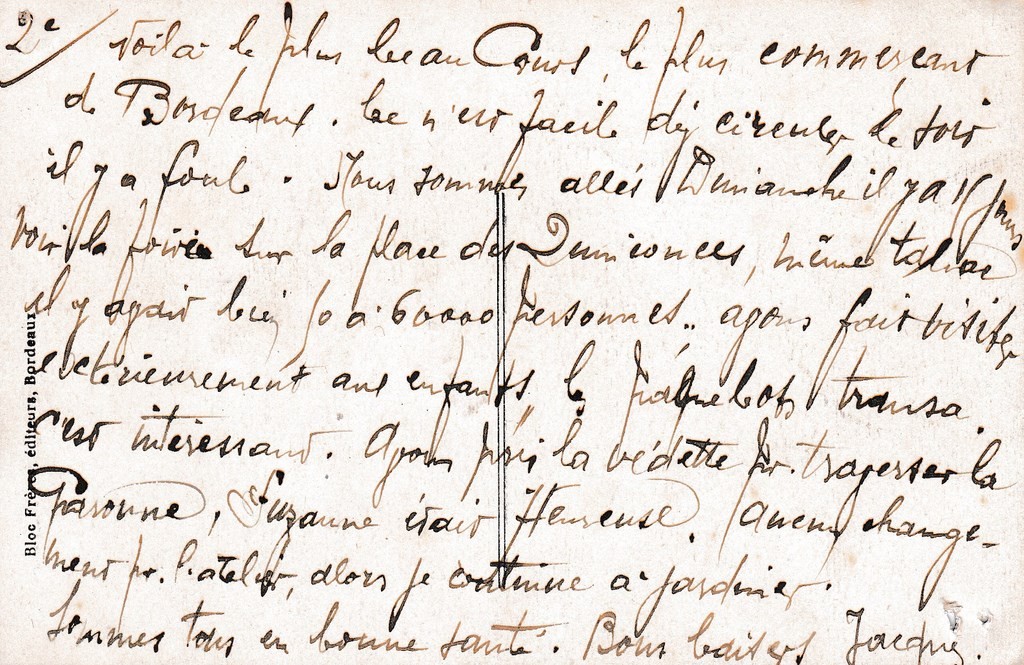 2e/ voilà le plus beau Cours, le plus commerçant
de Bordeaux. Ce n'est facile d'y circuler le soir
il y a foule. Nous sommes allés Dimanche il y a 15 jours
voir la foire sur la place des Quinconces, même tabac
il y avait bien 50 à 60000 personnes.. avons fait visiter
extérieurement aux enfants le páquebots transa.
C'est intéressant. Avons pris la védette pr. traverser la
Garonne, Suzanne était Heureuse. Aucun change-
ment pr. l'atelier, alors je continue à jardiner.
Sommes tous en bonne santé. Bons baisers Jacques.
Bloc Frères, éditeurs, Bordeaux